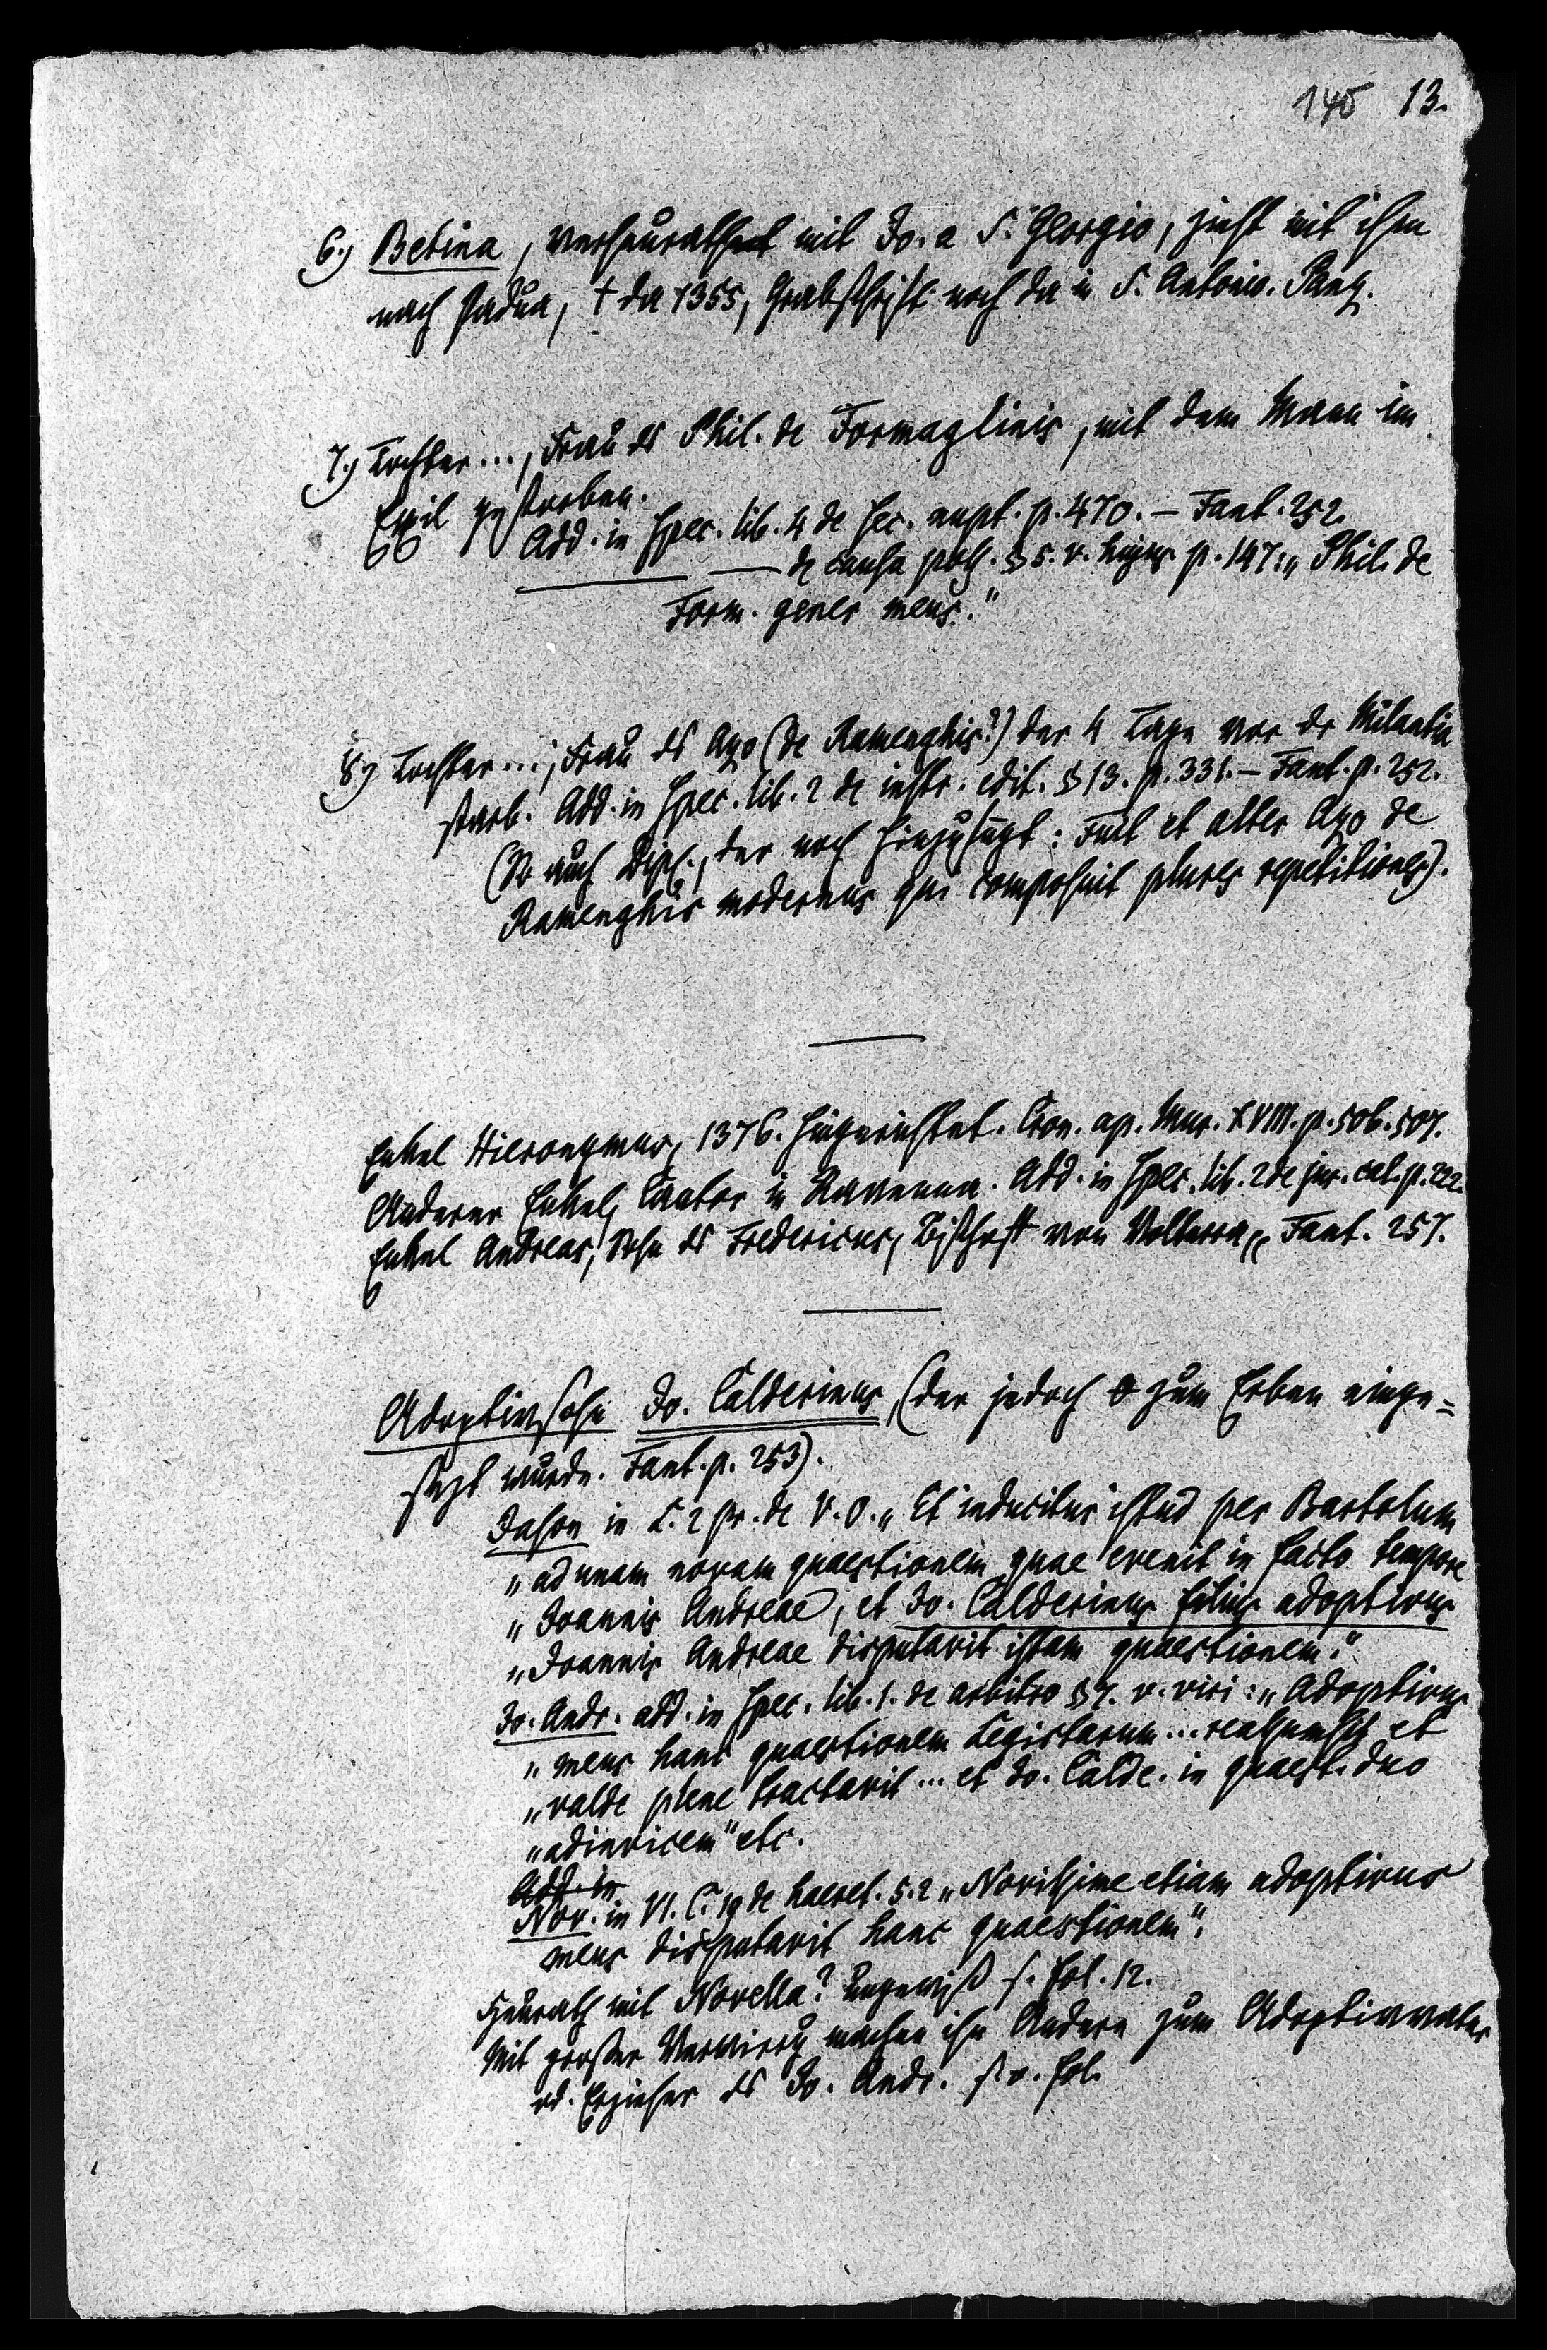 145 13.
6.) Betina, verheurathet mit Jo. a S. Georgio, zieht mit ihm
nach Padua, † da 1355, Grabschrift noch da in S. Antonio. Panz.
7.) Tochter..., Frau des Phil. de Formaglinis, mit dem Mann im
Exil gestorben.
Add. in Spec. lib. 4 de sec. nupt. p. 470. – Fant. 252.
——— —— de causa poss. § 5. v. hujus p. 147: „Phil. de
Form. gener meus."
8.) Tochter..., Frau des Azo (de Ramenghis?) der 4 Tage vor der
starb. Add. in Spec. lib. 2 de instr. edit. § 13. p. 331. – Fant. p. 252.
(So auch Dipl., der noch hinzufügt: Fuit et alter Azo de
Ramenghis modernus qui composuit plures repetitiones).
Enkel Hieronymus, 1376. hingerichtet. Cron. ap. Mur. XVIII. p. 506. 507.
Anderer Enkel, Cantor in Ravenna. Add. in Spec. lib. 2 de jur. cal. p. 222.
Enkel Andreas, Sohn des Fredericus, Bischoff von Volterra, Fant. 257.
Adoptivsohn Jo. Calderinus (der jedoch 0 zum Erben einge=
sezt wurde. Fant. p. 253).
Jason in L. 2 pr. de V. O. „Et inducitur istud per Bartolum
„ad unam novam quaestionem quae evenit in facto tempore
„Joannis Andreae, et Jo. Calderinus filius adoptivus
„Joannis Andreae disputavit istam quaestionem."
Jo. Andr. add. in Spec. lib. 1. de arbitro § 7. v. vici: „Adoptivus
„meus hanc quaestionem Legistarum... reassumsit et
„valde plene tractavit... et Jo. Calde. in quaest. duo
„adinvicem" etc.
Add. in
Nov. in VI. C. 19 de haeret. 5. 2 „Novissime etiam adoptivus
meus disputavit hanc quaestionem".
Heurath mit Novella? Ungewiß s. fol. 12.
Mit großer Verwirrg machen ihn Andere zum Adoptivvater
od. Erzieher des Jo. Andr. s. v. fol.